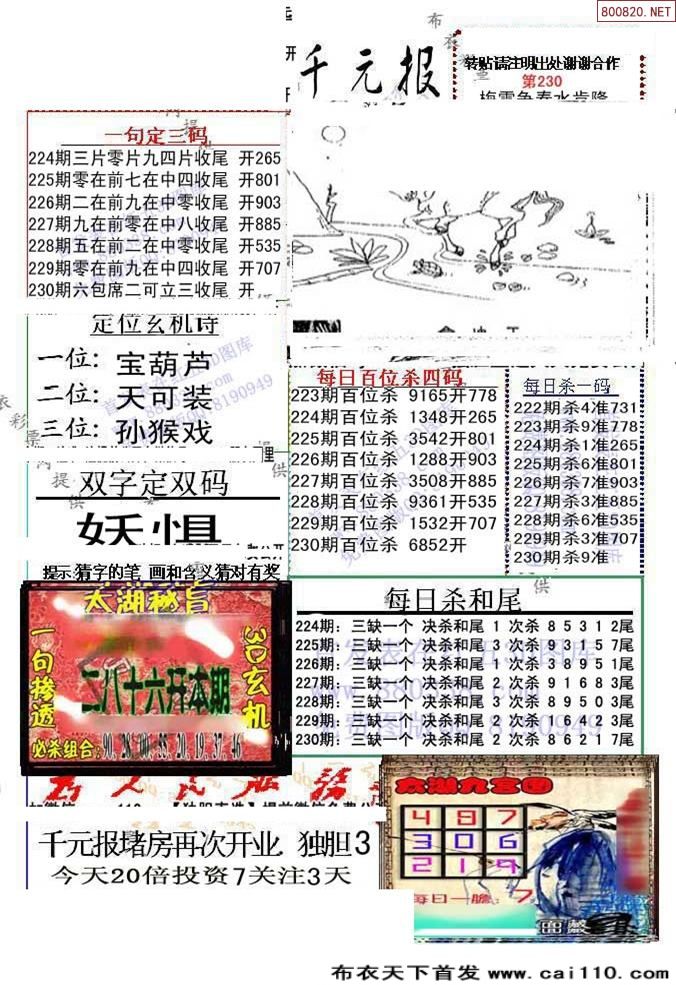 800820.NET
千元报
转贴请注明出处谢谢合作
第230
梅雪争春水肯降
一句定三码
224期三片零片九四片收尾 开265
225期零在前七在中四收尾 开801
226期二在前九在中零收尾 开903
227期九在前零在中八收尾 开885
228期五在前二在中零收尾 开535
229期零在前九在中四收尾 开707
230期六包席二可立三收尾 开
定位玄机诗
一位: 宝葫芦
二位: 天可装
三位: 孙猴戏
双字定双码
妖惧
提示猜字的笔 画和含义猜对有奖
每日百位杀四码
223期百位杀 9165开778
224期百位杀 1348开265
225期百位杀 3542开801
226期百位杀 1288开903
227期百位杀 3508开885
228期百位杀 9361开535
229期百位杀 1532开707
230期百位杀 6852开
每日杀一码
222期杀4准731
223期杀9准778
224期杀1准265
225期杀6准801
226期杀7准903
227期杀3准885
228期杀6准535
229期杀3准707
230期杀9准
每日杀和尾
224期: 三缺一个 决杀和尾 1 次杀 8 5 3 1 2尾
225期: 三缺一个 决杀和尾 3 次杀 9 3 1 5 7尾
226期: 三缺一个 决杀和尾 1 次杀 3 8 9 5 1尾
227期: 三缺一个 决杀和尾 2 次杀 9 1 6 8 3尾
228期: 三缺一个 决杀和尾 3 次杀 8 9 5 0 3尾
229期: 三缺一个 决杀和尾 2 次杀 1 0 6 4 2 3尾
230期: 三缺一个 决杀和尾 2 次杀 8 6 2 1 7尾
太湖秘旨
一句掺透
3D玄机
二八十六开本期
必杀组合:90.28.00.33.20.19.37.46
千元报堵房再次开业 独胆3
今天20倍投资7关注3天
太湖九宫图
4 8 7
3 0 6
2 1 9
每日一胆: 7
西藏
布衣天下首发 www.cai110.com